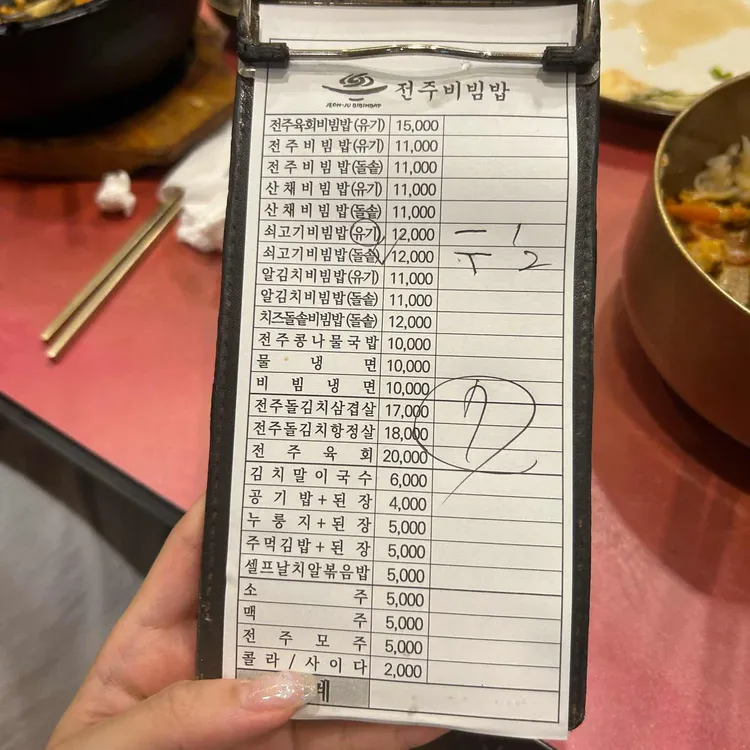 JEON-JU BIBIMBAP 전주비빔밥
전주육회비빔밥(유기) 15,000
전주비빔밥(유기) 11,000
전주비빔밥(돌솥) 11,000
산채비빔밥(유기) 11,000
산채비빔밥(돌솥) 11,000
쇠고기비빔밥(유기) 12,000 一 1
쇠고기비빔밥(돌솥) 12,000 T 2
알김치비빔밥(유기) 11,000
알김치비빔밥(돌솥) 11,000
치즈돌솥비빔밥(돌솥) 12,000
전주콩나물국밥 10,000
물냉면 10,000
비빔냉면 10,000
전주돌김치삼겹살 17,000
전주돌김치항정살 18,000
전주육회 20,000
김치말이국수 6,000
공기밥+된장 4,000
누룽지+된장 5,000
주먹김밥+된장 5,000
셀프날치알볶음밥 5,000
소주 5,000
맥주 5,000
전주모주 5,000
콜라/사이다 2,000